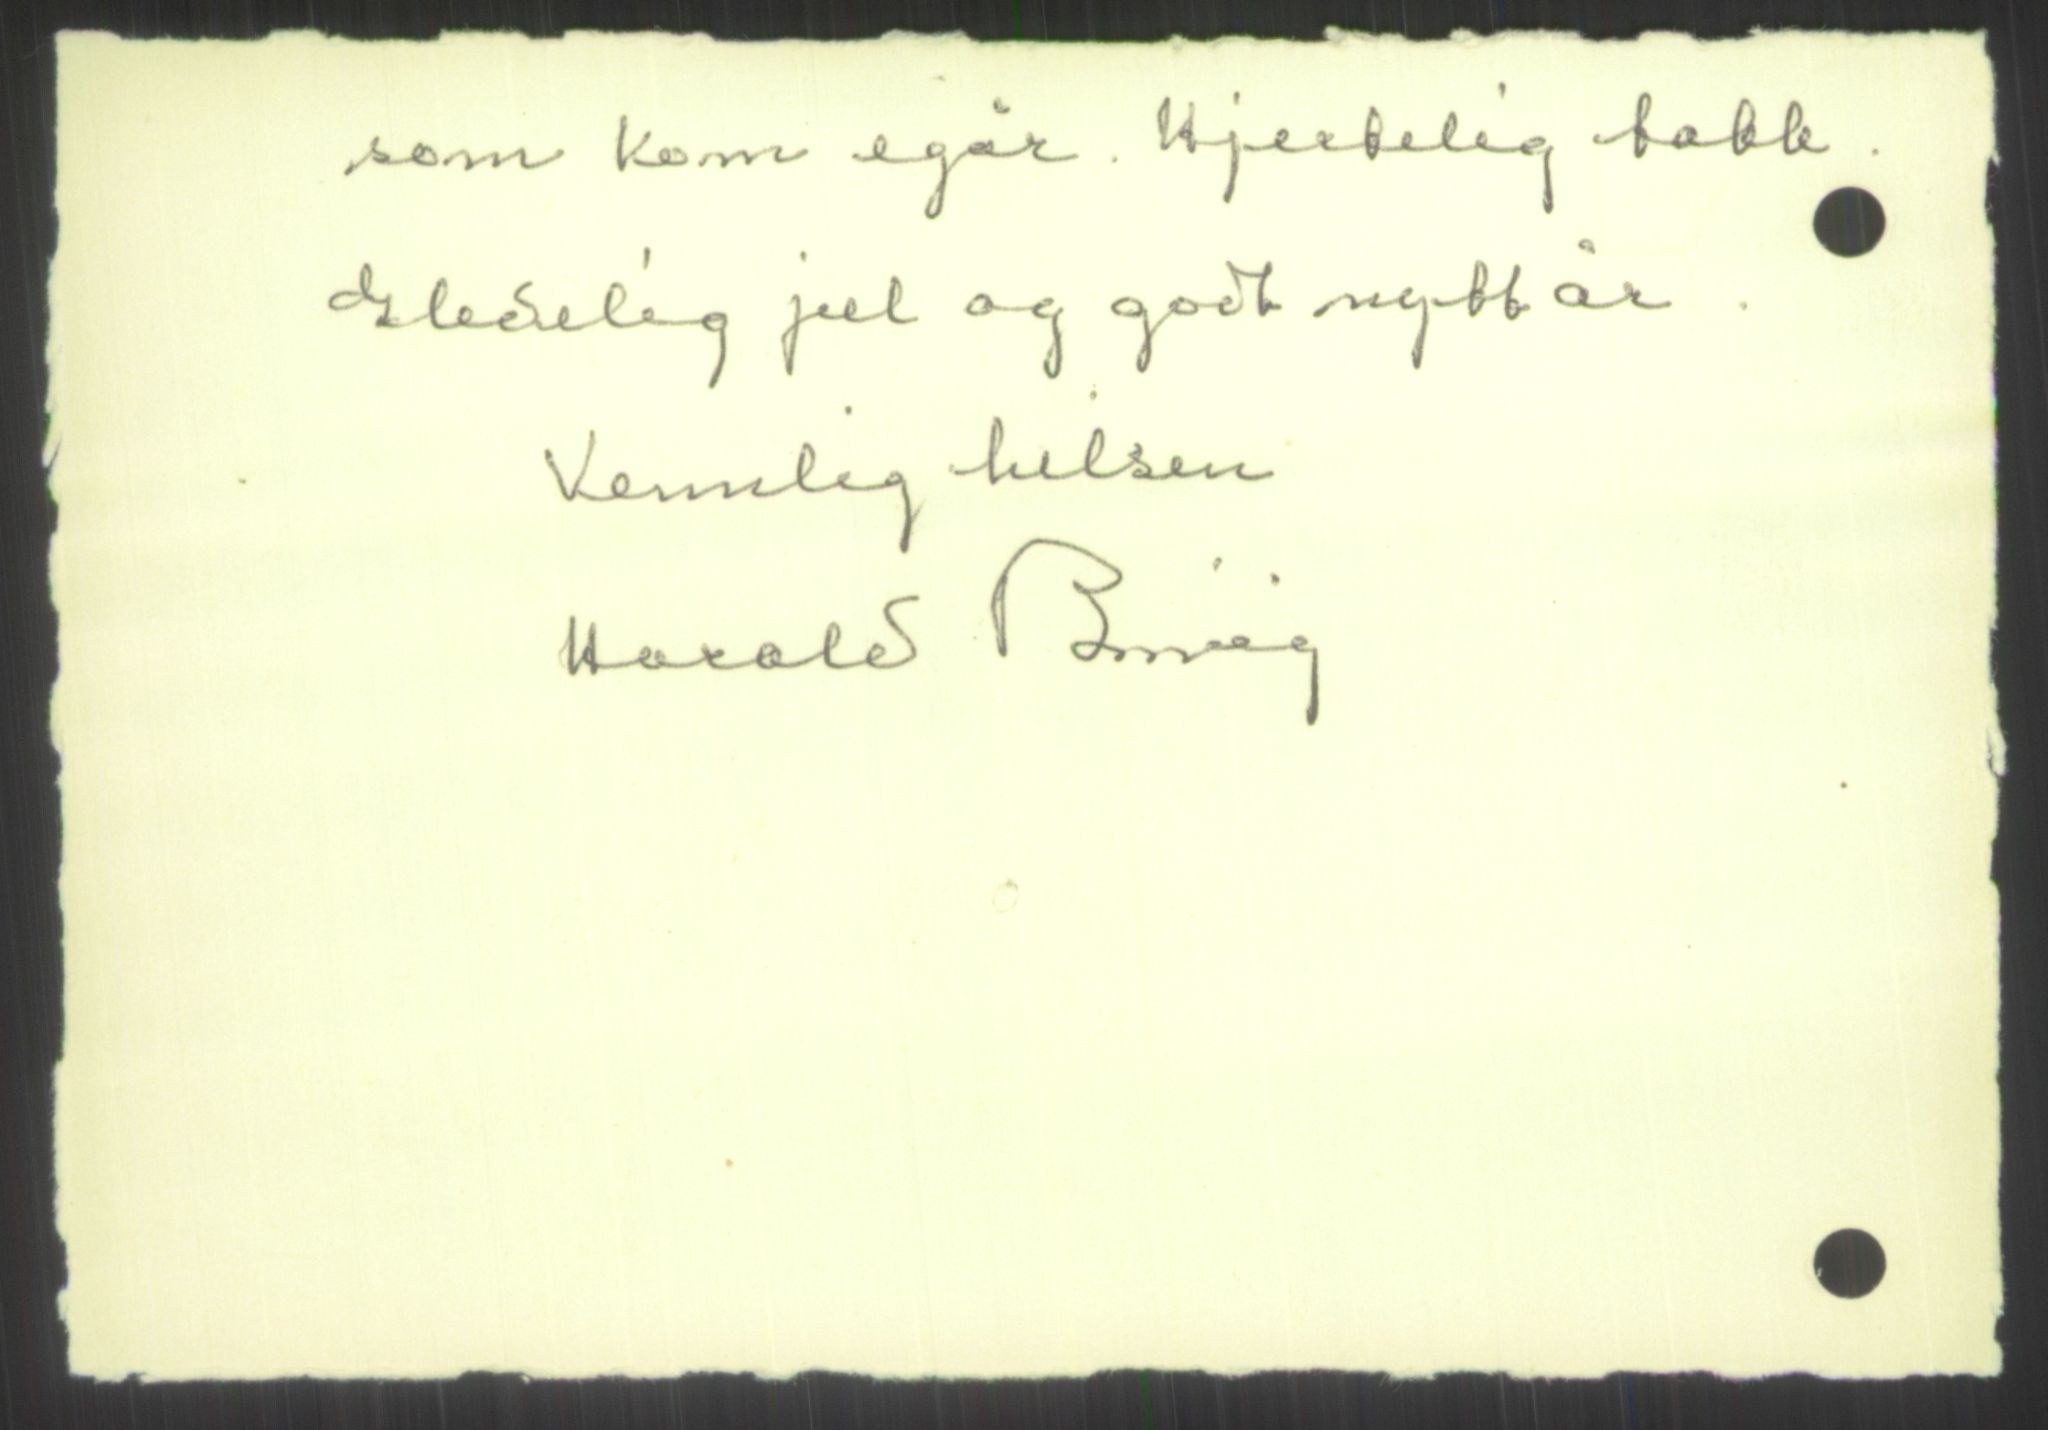 som kom igår. Hjertelig takk.
Gledelig jul og godt nytt år.
Vennlig hilsen
Harald